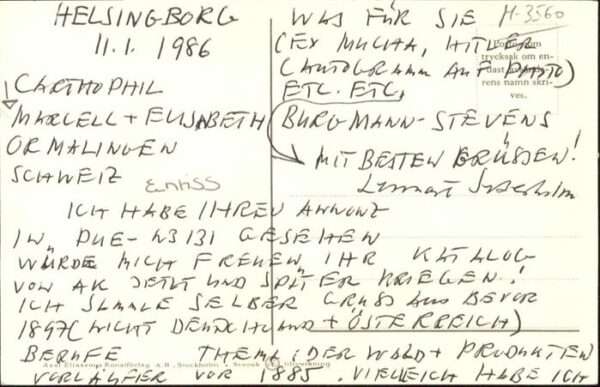 HELSINGBORG
11.1. 1986
CARTHOPHIL
MARCELL + ELISABETH
ORMALINGEN
SCHWEIZ
Entiss
ICH HABE IHREN ANNONZ
IN "DUE-43131 GESEHEN
WÜRDE MICH FREUEN, IHR KATALOG
VON AK JETZT UND SPÄTER KRIEGEN!
ICH SAMMLE SELBER GRUSS AUS BEVOR
1897 (NICHT DEUTSCHLAND + ÖSTERREICH)
BERUFE THEMA: DER WALD + PRODUKTEN
VORLÄUFER VOR 1885. VIELLEICH HABE ICH
WAS FÜR SIE
(EX MUCHA, HITLER
(AUTOGRAMM AUF PHOTO)
ETC. ETC.
BURGMANN-STEVENS
MIT BESTEN GRÜSSEN!
Lennart
H-3560
trycksak om en-
rens namn skri-
ves.
Axel Eliassons Konstförlag A.B., Stockholm - Svensk tillverkning